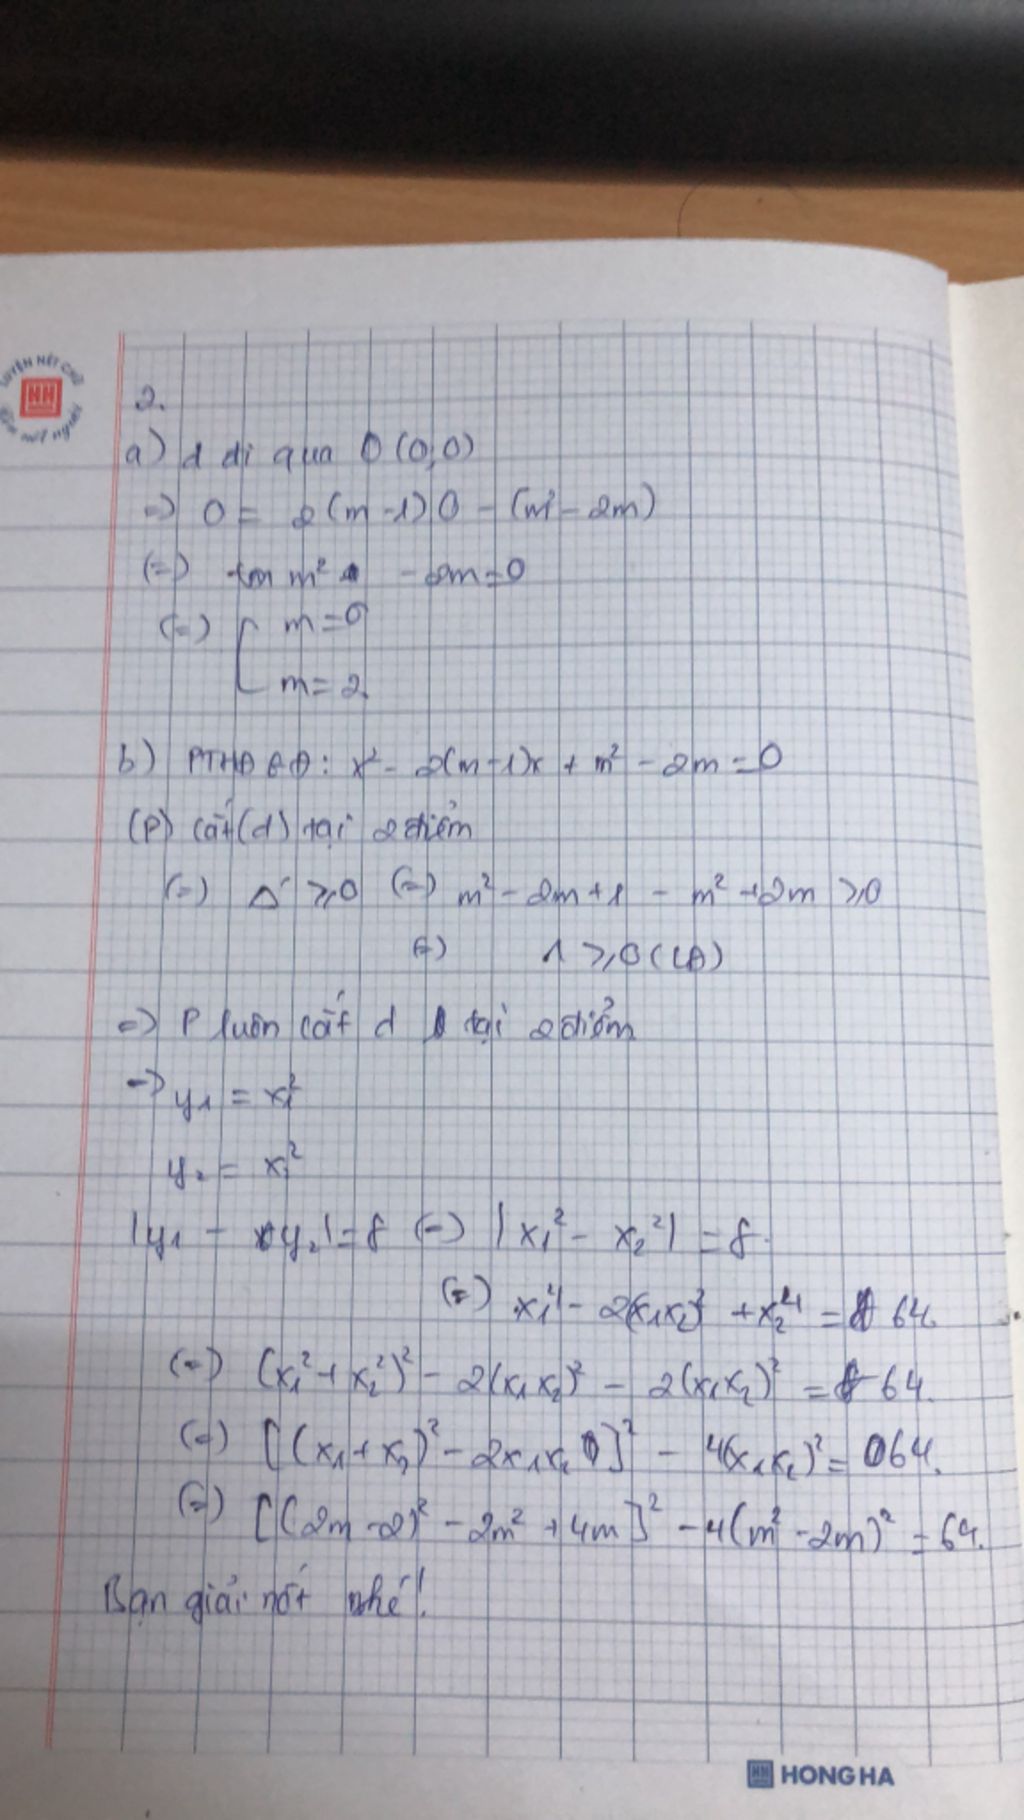 LUYỆN NÉT CHỮ
HH
Rèn nết người
2.
a) d đi qua O(0,0)
=> 0 = 2(m-1)0 - (m² - 2m)
(=) m² - 2m = 0
(=) [ m = 0
m = 2
b) PTHĐGĐ: x² - 2(m-1)x + m² - 2m = 0
(P) cắt (d) tại 2 điểm
(=) Δ' ⩾ 0 (=) m² - 2m + 1 - m² + 2m ⩾ 0
(=) 1 ⩾ 0 (LĐ)
=> P luôn cắt d tại 2 điểm
=> y₁ = x₁²
y₂ = x₁²
|y₁ - y₂| = 8 (=) |x₁² - x₂²| = 8
(=) x₁⁴ - 2(x₁x₂)² + x₂⁴ = 64.
(=) (x₁² + x₂²)² - 2(x₁x₂)² - 2(x₁x₂)² = 64.
(=) [(x₁ + x₂)² - 2x₁x₂]² - 4(x₁x₂)² = 64.
(=) [(2m - 2)² - 2m² + 4m]² - 4(m² - 2m)² = 64.
Bạn giải nốt nhé!
HH HONG HA